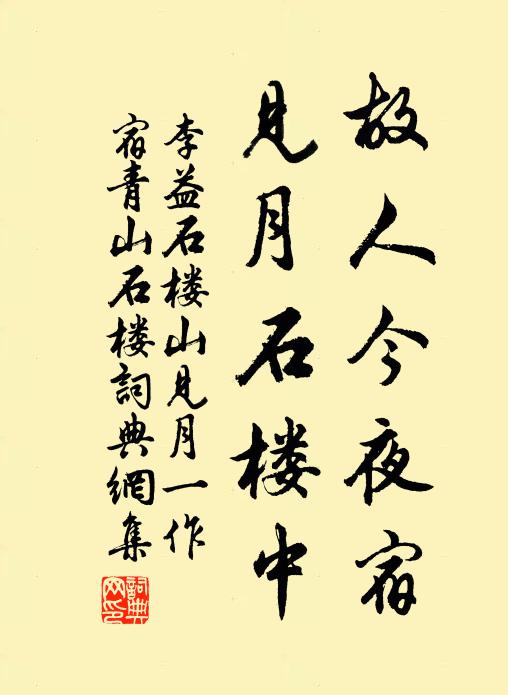 故人今夜宿
见月石楼中
李益石楼山见月一作
宿青山石楼詞典網集
詞典網印